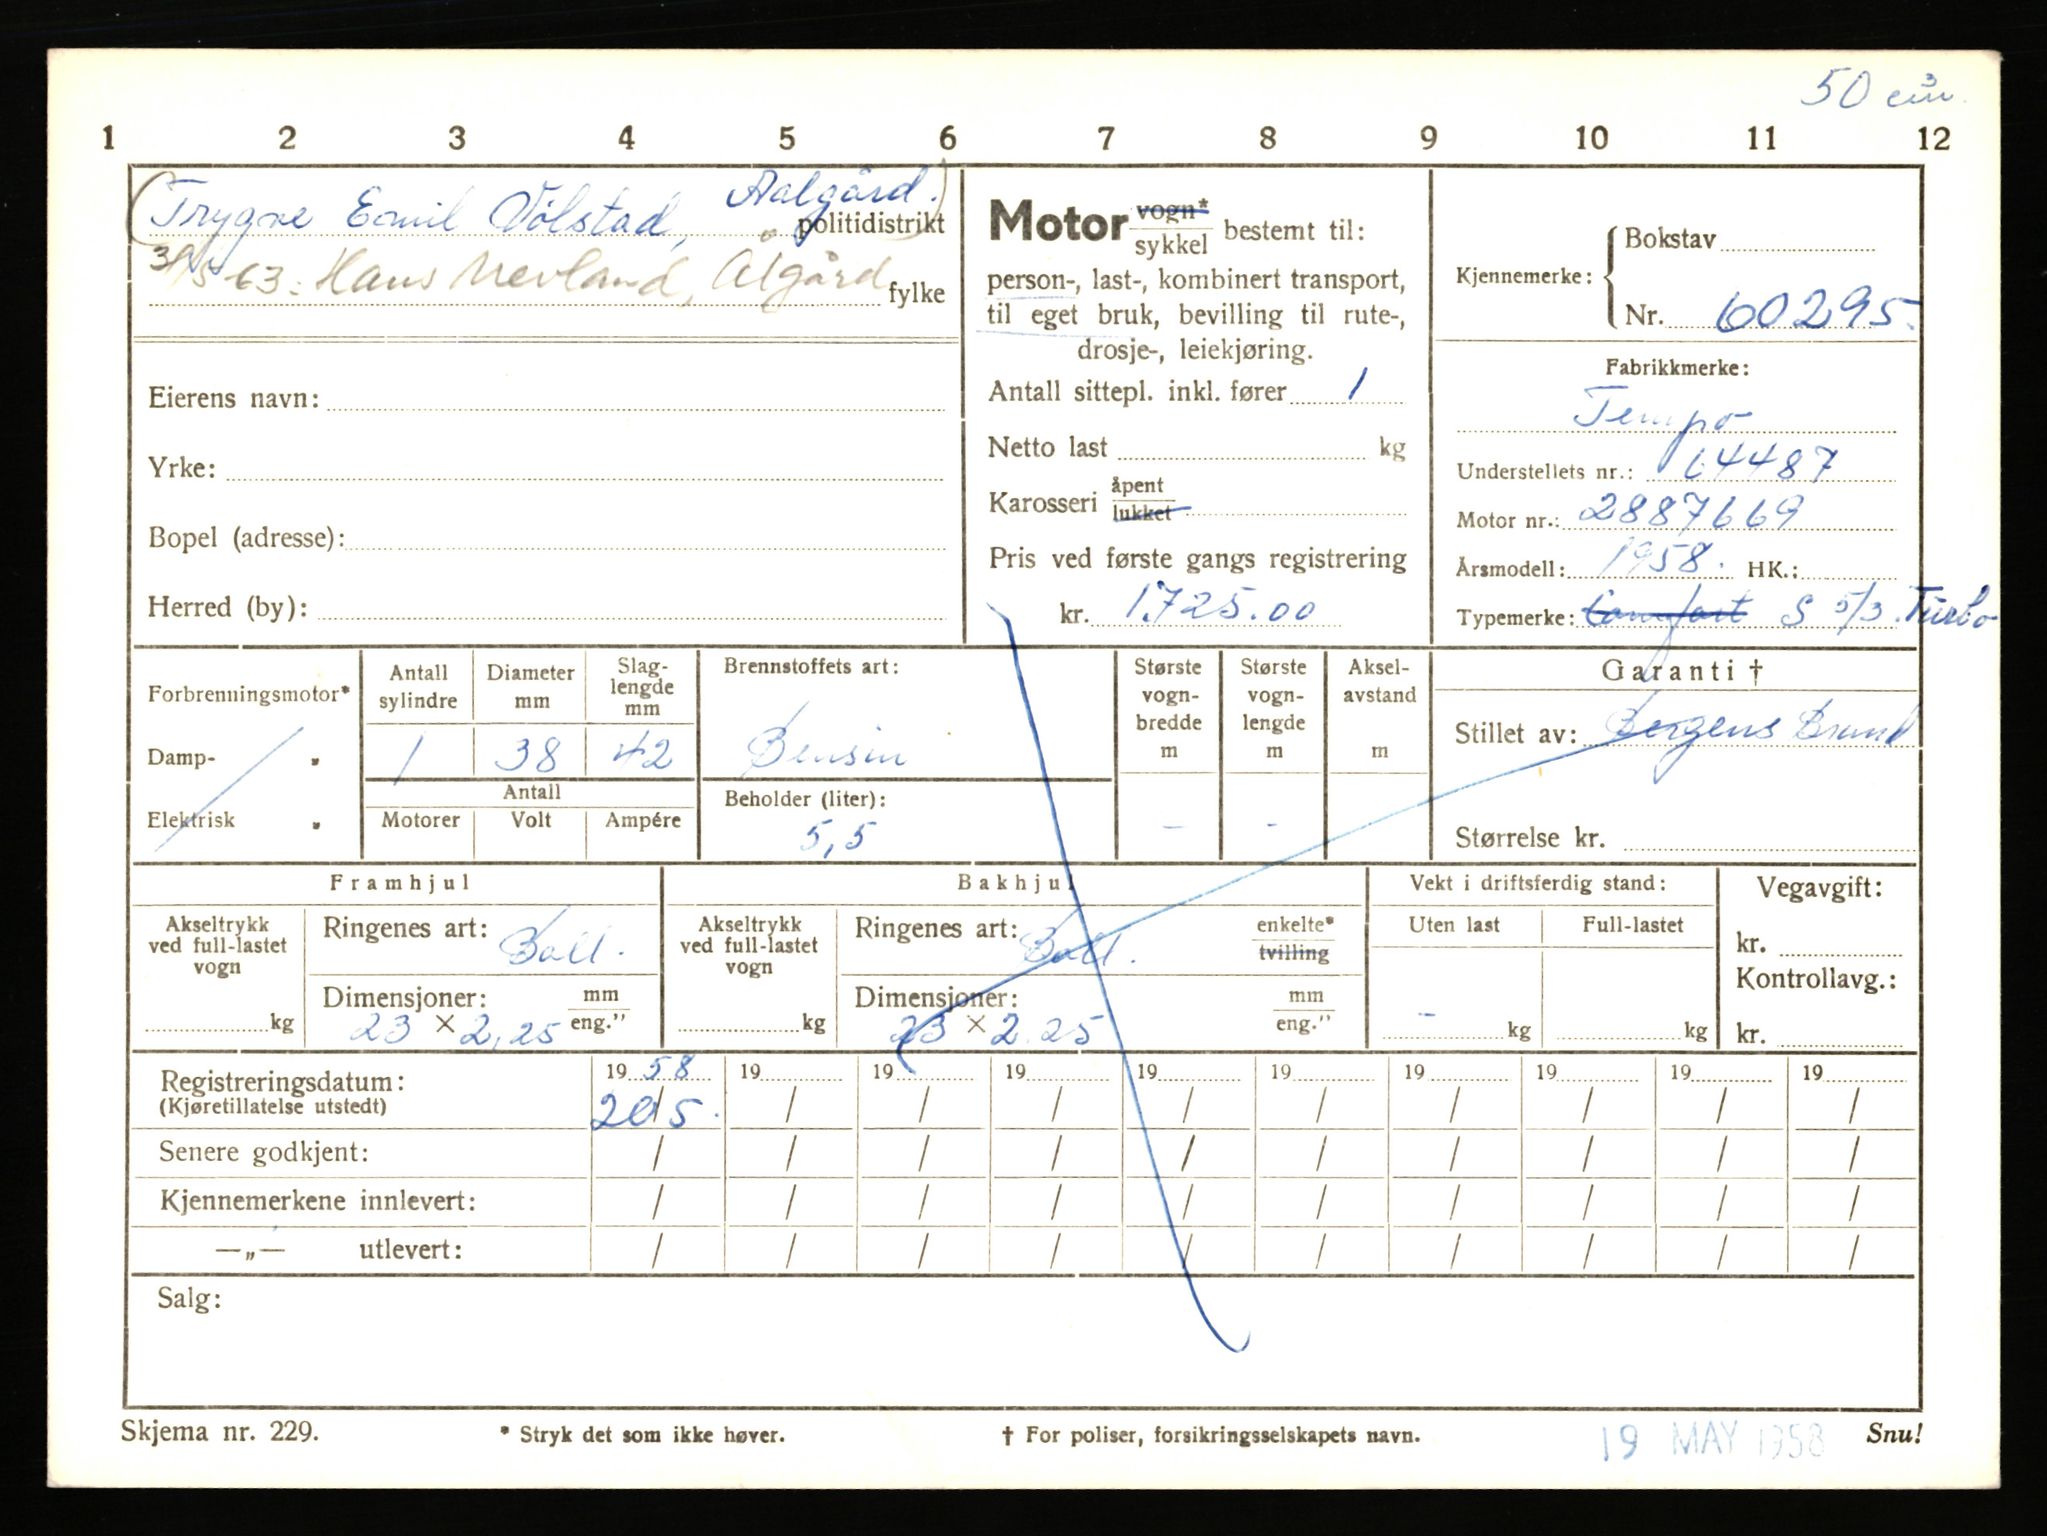 50 cm³
1 2 3 4 5 6 7 8 9 10 11 12
(Trygve Emil Vølstad, Aalgård.) politidistrikt
31/5-63: Hans Nevland, Ålgård fylke
Eierens navn:
Yrke:
Bopel (adresse):
Herred (by):
Motor vogn* / sykkel bestemt til:
person-, last-, kombinert transport,
til eget bruk, bevilling til rute-,
drosje-, leiekjøring.
Antall sittepl. inkl. fører 1
Netto last kg
Karosseri åpent / lukket
Pris ved første gangs registrering
kr. 1.725.00
Kjennemerke: Bokstav
Nr. 60295.
Fabrikkmerke:
Tempo
Understellets nr.: 64487
Motor nr.: 2887669
Årsmodell: 1958. HK.:
Typemerke: Comfort S 5/3. Turbo
Forbrenningsmotor*
Damp- "
Elektrisk "
Antall sylindre 1
Diameter mm 38
Slaglengde mm 42
Antall
Motorer Volt Ampére
Brennstoffets art:
Bensin
Beholder (liter):
5,5
Største vognbredde m -
Største vognlengde m -
Akselavstand m
Garanti †
Stillet av: Bergens Brand
Størrelse kr.
Framhjul
Akseltrykk ved full-lastet vogn kg
Ringenes art: Ball.
Dimensjoner: mm / eng."
23 × 2,25
Bakhjul
Akseltrykk ved full-lastet vogn kg
Ringenes art: Ball. enkelte* / tvilling
Dimensjoner: mm / eng."
23 × 2.25
Vekt i driftsferdig stand:
Uten last Full-lastet
- kg kg
Vegavgift:
kr.
Kontrollavg.:
kr.
Registreringsdatum: 1958 19 19 19 19 19 19 19 19 19
(Kjøretillatelse utstedt) 20/5. / / / / / / / / /
Senere godkjent: / / / / / / / / / /
Kjennemerkene innlevert: / / / / / / / / / /
—„— utlevert: / / / / / / / / / /
Salg:
Skjema nr. 229. * Stryk det som ikke høver. † For poliser, forsikringsselskapets navn. 19 MAY 1958 Snu!